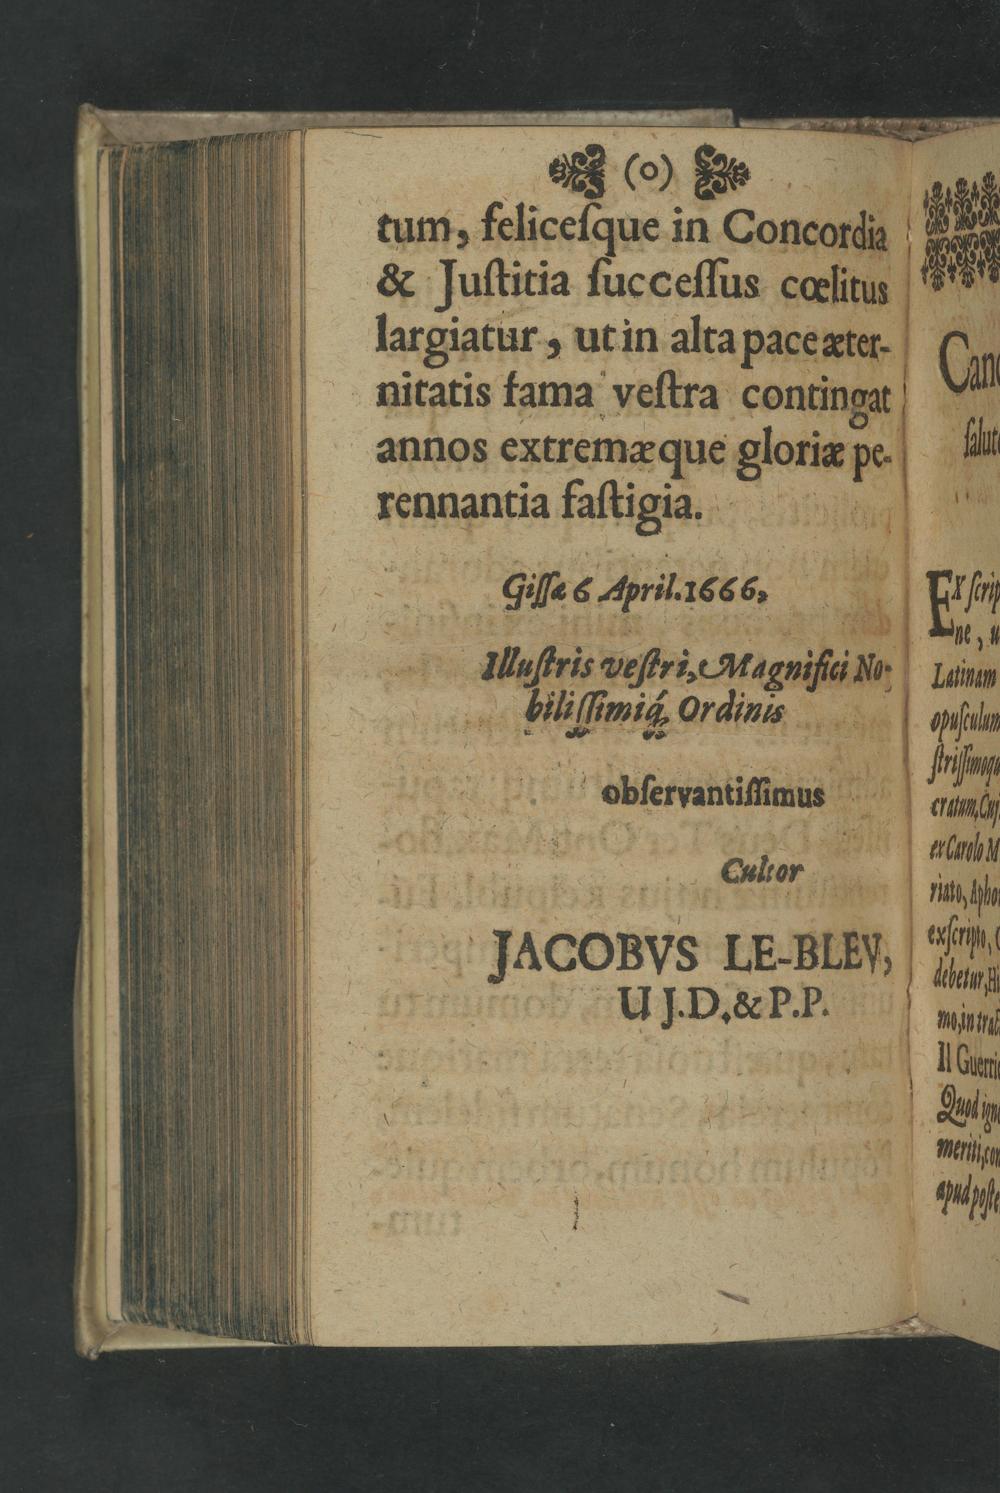 (o)
tum, feliceſque in Concordia
& Juſtitia ſucceſſus cœlitus
largiatur, ut in alta pace æter-
nitatis fama veſtra contingat
annos extremæque gloriæ pe-
rennantia faſtigia.
Giſſæ 6 April. 1666,
Illuſtris veſtri, Magnifici No-
biliſſimiq́; Ordinis
obſervantiſſimus
Cultor
JACOBVS LE-BLEV,
U J.D. & P.P.
Ex ſcrip
ne, u
Latinam
opuſculum
ſtriſſimoqu
cratum, Cuj
ex Carolo M
riato, Apho
exſcripto, C
debetur, Hi
mo, in tra
Il Guerri
Quod ign
meriti, con
apud poſte